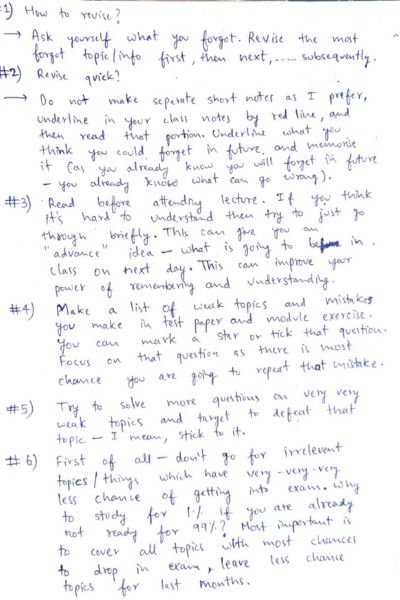 #1) How to revise?
→ Ask yourself what you forgot. Revise the most
forgot topic/info first, then next, ..... subsequently.
#2) Revise quick?
→ Do not make separate short notes as I prefer,
underline in your class notes by red line, and
then read that portion. Underline what you
think you could forget in future, and memorise
it (as you already know you will forget in future
- you already know what can go wrong).
#3) Read before attending lecture. If you think
it's hard to understand then try to just go
through briefly. This can give you an
"advance" idea - what is going to be in
class on next day. This can improve your
power of remembering and understanding.
#4) Make a list of weak topics and mistakes
you make in test paper and module exercise.
You can mark a star or tick that question.
Focus on that question as there is most
chance you are going to repeat that mistake.
#5) Try to solve more questions on very very
weak topics and target to defeat that
topic - I mean, stick to it.
#6) First of all - don't go for irrelevent
topics/things which have very-very-very
less chance of getting into exam. Why
to study for 1% if you are already
not ready for 99%? Most important is
to cover all topics with most chances
to drop in exam, leave less chance
topics for last months.